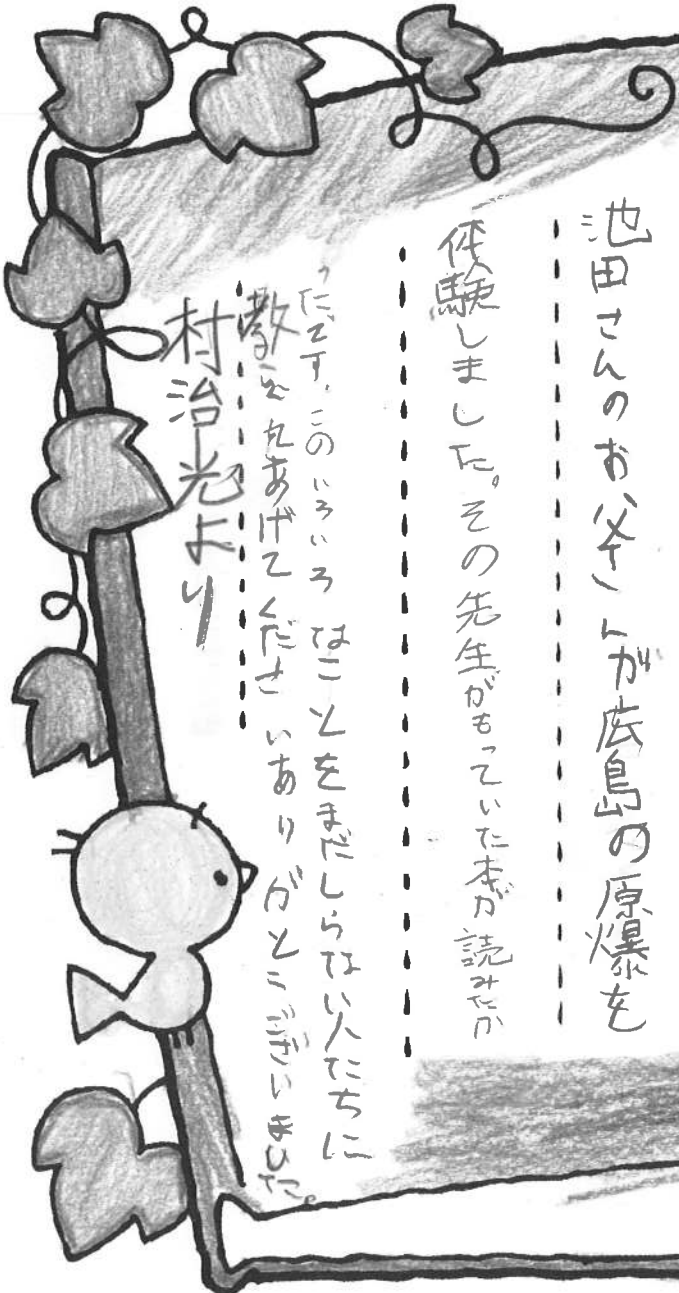 池田さんのお父さんが広島の原爆を
体験しました。その先生がもっていた本が読みたか
ったです。このいろいろなことをまだしらない人たちに
教えてあげてくださいありがとうございました。
村治光より